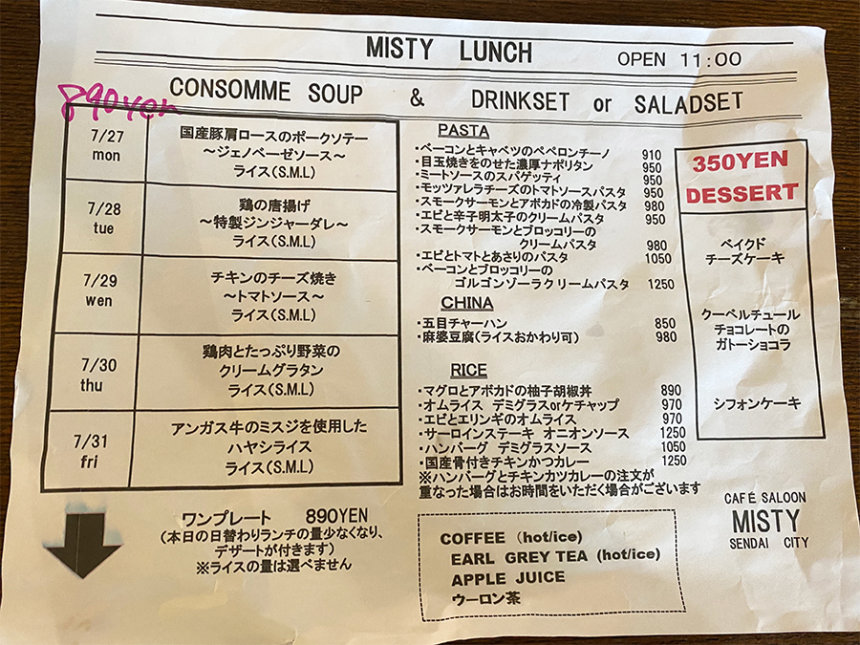 MISTY LUNCH OPEN 11:00
CONSOMME SOUP & DRINKSET or SALADSET
890yen
7/27
mon
国産豚肩ロースのポークソテー
~ジェノベーゼソース~
ライス(S.M.L)
7/28
tue
鶏の唐揚げ
~特製ジンジャーダレ~
ライス(S.M.L)
7/29
wen
チキンのチーズ焼き
~トマトソース~
ライス(S.M.L)
7/30
thu
鶏肉とたっぷり野菜の
クリームグラタン
ライス(S.M.L)
7/31
fri
アンガス牛のミスジを使用した
ハヤシライス
ライス(S.M.L)
ワンプレート 890YEN
(本日の日替わりランチの量少なくなり、
デザートが付きます)
※ライスの量は選べません
PASTA
・ベーコンとキャベツのペペロンチーノ 910
・目玉焼きをのせた濃厚ナポリタン 950
・ミートソースのスパゲッティ 950
・モッツァレラチーズのトマトソースパスタ 950
・スモークサーモンとアボカドの冷製パスタ 980
・エビと辛子明太子のクリームパスタ 950
・スモークサーモンとブロッコリーの
クリームパスタ 980
・エビとトマトとあさりのパスタ 1050
・ベーコンとブロッコリーの
ゴルゴンゾーラクリームパスタ 1250
CHINA
・五目チャーハン 850
・麻婆豆腐(ライスおかわり可) 980
RICE
・マグロとアボカドの柚子胡椒丼 890
・オムライス デミグラスorケチャップ 970
・エビとエリンギのオムライス 970
・サーロインステーキ オニオンソース 1250
・ハンバーグ デミグラスソース 1050
・国産骨付きチキンかつカレー 1250
※ハンバーグとチキンカツカレーの注文が
重なった場合はお時間をいただく場合がございます
COFFEE (hot/ice)
EARL GREY TEA (hot/ice)
APPLE JUICE
ウーロン茶
350YEN
DESSERT
ベイクド
チーズケーキ
クーベルチュール
チョコレートの
ガトーショコラ
シフォンケーキ
CAFÉ SALOON
MISTY
SENDAI CITY